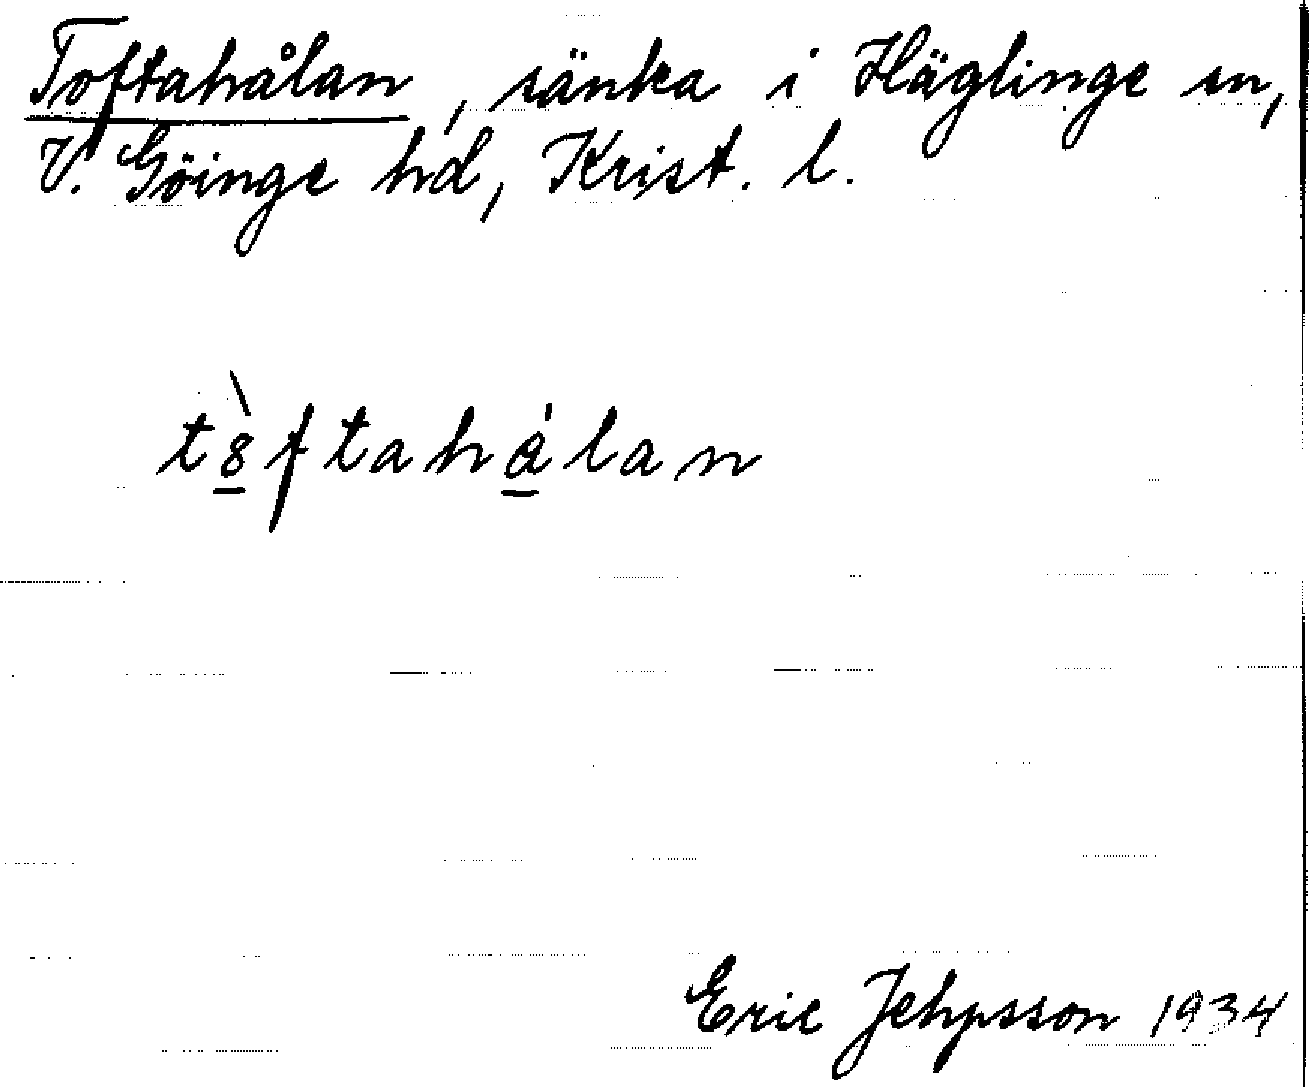 Toftahålan, sänka i Häglinge sn,
V. Göinge hd, Krist. l.
tò̱ftahá̱lan
Eric Jehpsson 1934